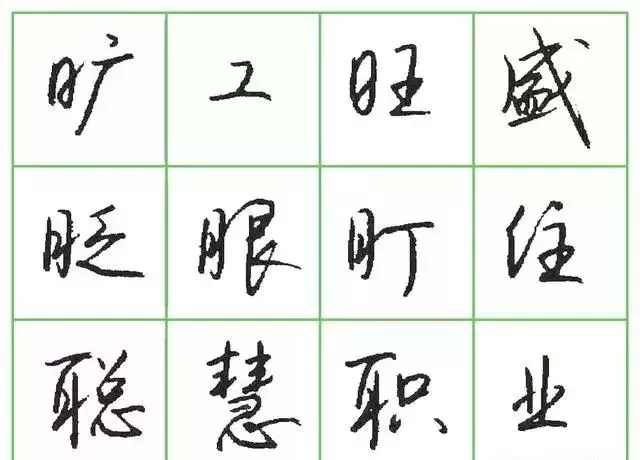 旷工旺盛
眨眼盯住
聪慧职业